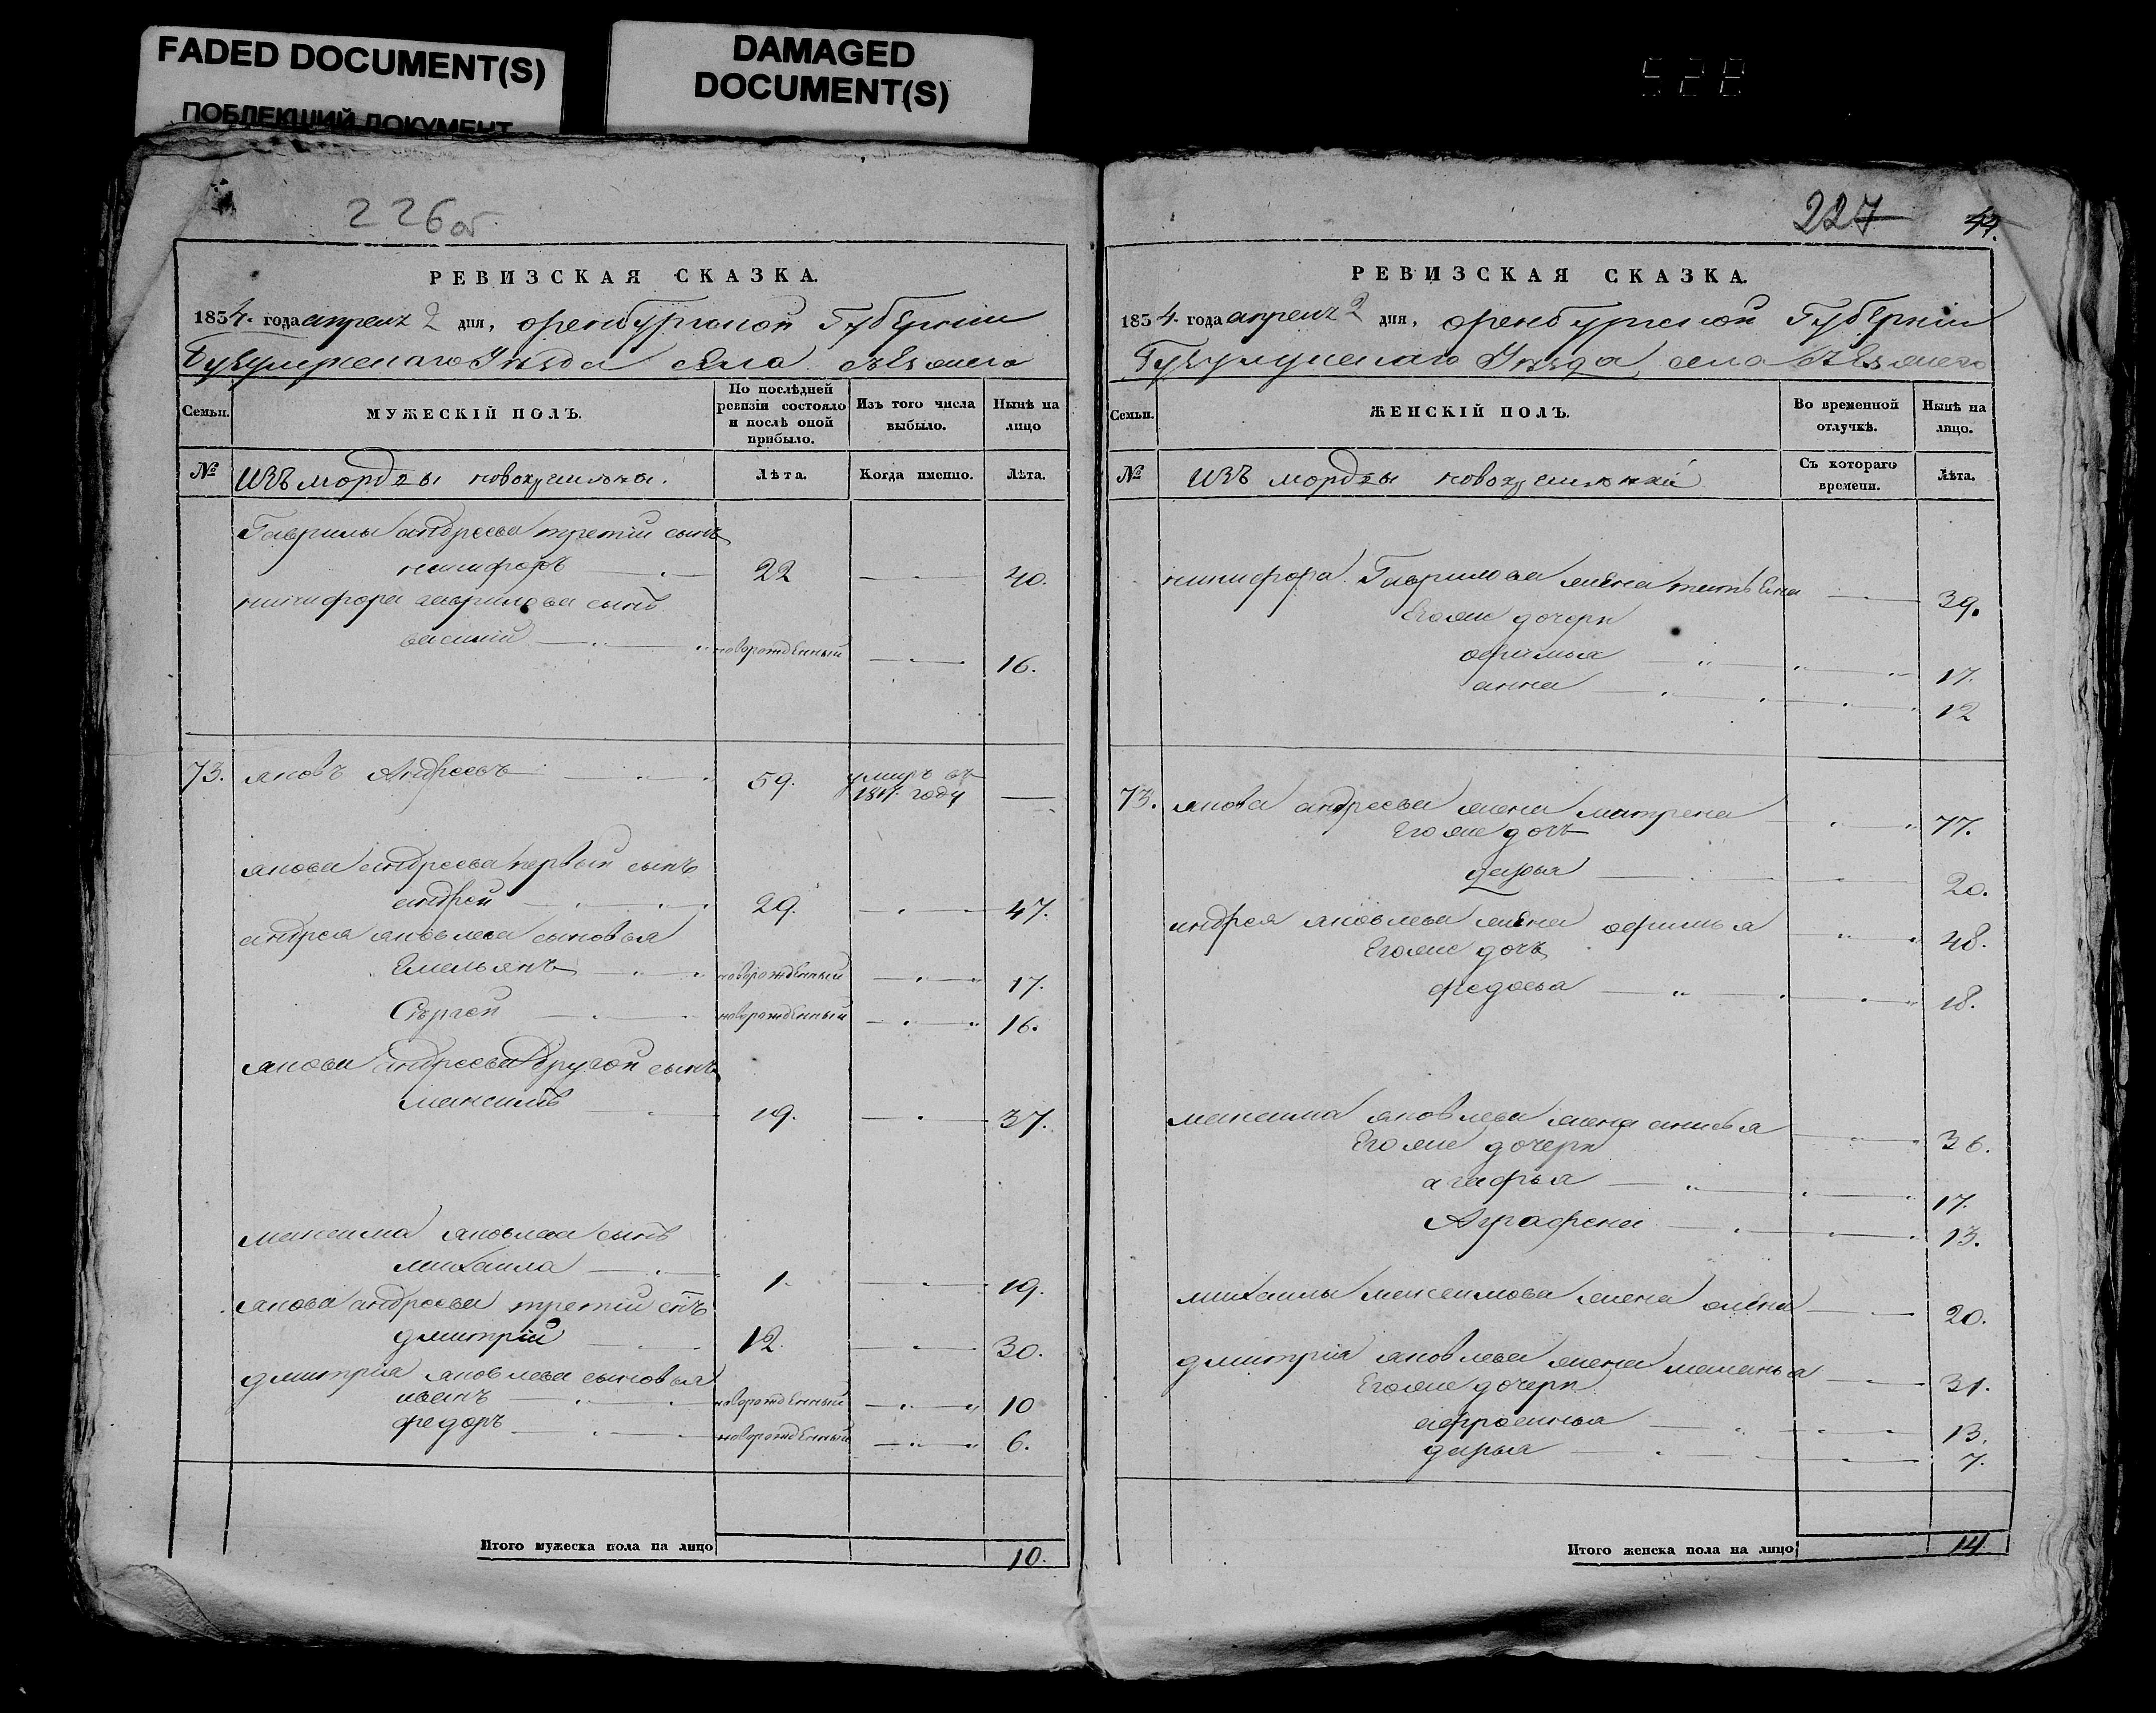 FADED DOCUMENT(S)
ПОБЛЕКШИЙ ДОКУМЕНТ
DAMAGED
DOCUMENT(S)
226об
РЕВИЗСКАЯ СКАЗКА.
1834. года апреля 2 дня, оренбургской Губернии
Бугульминского Уезда села
Семьи.
МУЖЕСКІЙ ПОЛЪ.
По послѣдней ревизіи состояло и послѣ оной прибыло.
Изъ того числа выбыло.
Нынѣ на лицо
№ Изъ мордвы новокрещены. Лѣта. Когда именно. Лѣта.
Гаврилы андреева третій сынъ
никифоръ 22 40.
никифора гаврилова сынъ
василій новорожденный 16.
73. яковъ Андреевъ 59. умиръ въ
году
якова андреева первый сынъ
андрей 29. 47.
андрея яковлева сыновья
Емельянъ новорожденный 17.
Сѣргей новорожденный 16.
якова андреева Другой сынъ
максимъ 19. 37.
максима яковлева сынъ
михаила 1. 19.
якова андреева третій снъ
дмитрій 12. 30.
дмитрія яковлева сыновья
иванъ новорожденный 10
федоръ новорожденный 6.
Итого мужеска пола на лицо 10.
227 44.
РЕВИЗСКАЯ СКАЗКА.
1834. года апреля 2 дня, оренбургской Губерніи
Бугульминского Уезда, села
Семьи.
ЖЕНСКІЙ ПОЛЪ.
Во временной отлучкѣ.
Нынѣ на лицо.
№ Изъ мордвы Съ котораго времени. Лѣта.
никифора Гаврилова жена 39.
Его же дочери
офимья 17.
анна 12
73. якова андреева жена матрена 77.
Его же дочь
дарья 20.
андрея яковлева жена офимья 48.
Его же дочь
федосья 18.
максима яковлева жена анисья 36.
Его же дочери
агафья 17.
Аграфена 13.
михаилы максимова жена олена 20.
дмитрія яковлева жена маланья 31.
Его же дочери
афросинья 13.
дарья 7.
Итого женска пола на лицо 14